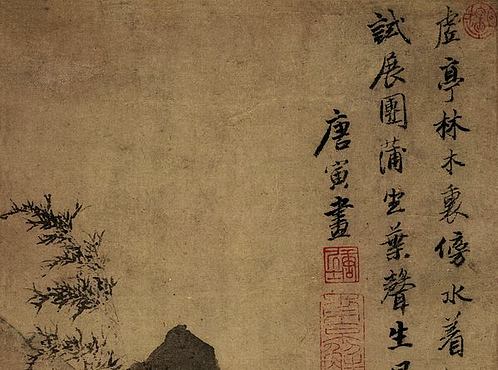 虚亭林木裏傍水着
試展團蒲坐葉聲生
唐寅畫